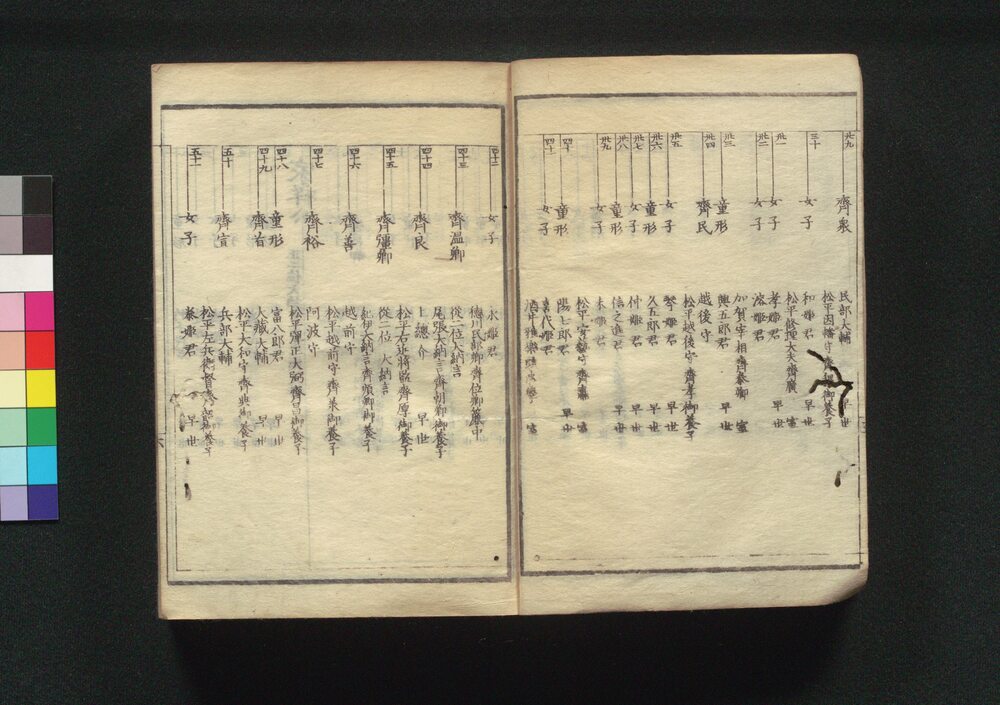 廿九
齊衆
民部大輔 早世
松平因幡守齊 御養子
三十
女子
和姬君
松平修理大夫齊廣 室
卅一
女子
孝姬君 早世
卅二
女子
浴姬君
加賀宰相齊泰卿 室
卅三
童形
興五郎君 早世
卅四
齊民
越後守
松平越後守齊孝御養子
卅五
女子
琴姬君 早世
卅六
童形
久五郎君 早世
卅七
女子
仲姬君 早世
卅八
童形
信之進君 早世
卅九
女子
末姬君
松平安藝守齊肅 室
四十
童形
陽七郎君 早世
四十一
女子
喜代姬君
室
四十二
女子
永姬君
德川民部卿齊位卿簾中
四十三
齊溫卿
從二位大納言
尾張大納言齊朝卿御養子
四十四
齊良
上總介 早世
松平右近將監齊厚御養子
四十五
齊彊卿
從二位 大納言
紀伊大納言齊順卿御養子
四十六
齊善
越前守
松平越前守齊承御養子
四十七
齊裕
阿波守
松平彈正大弼齊昌御養子
四十八
童形
富八郎君 早世
四十九
齊省
大藏大輔 早世
松平大和守齊典御養子
五十
齊宣
兵部大輔
松平左兵衛督齊 御養子
五十一
女子
泰姬君 早世